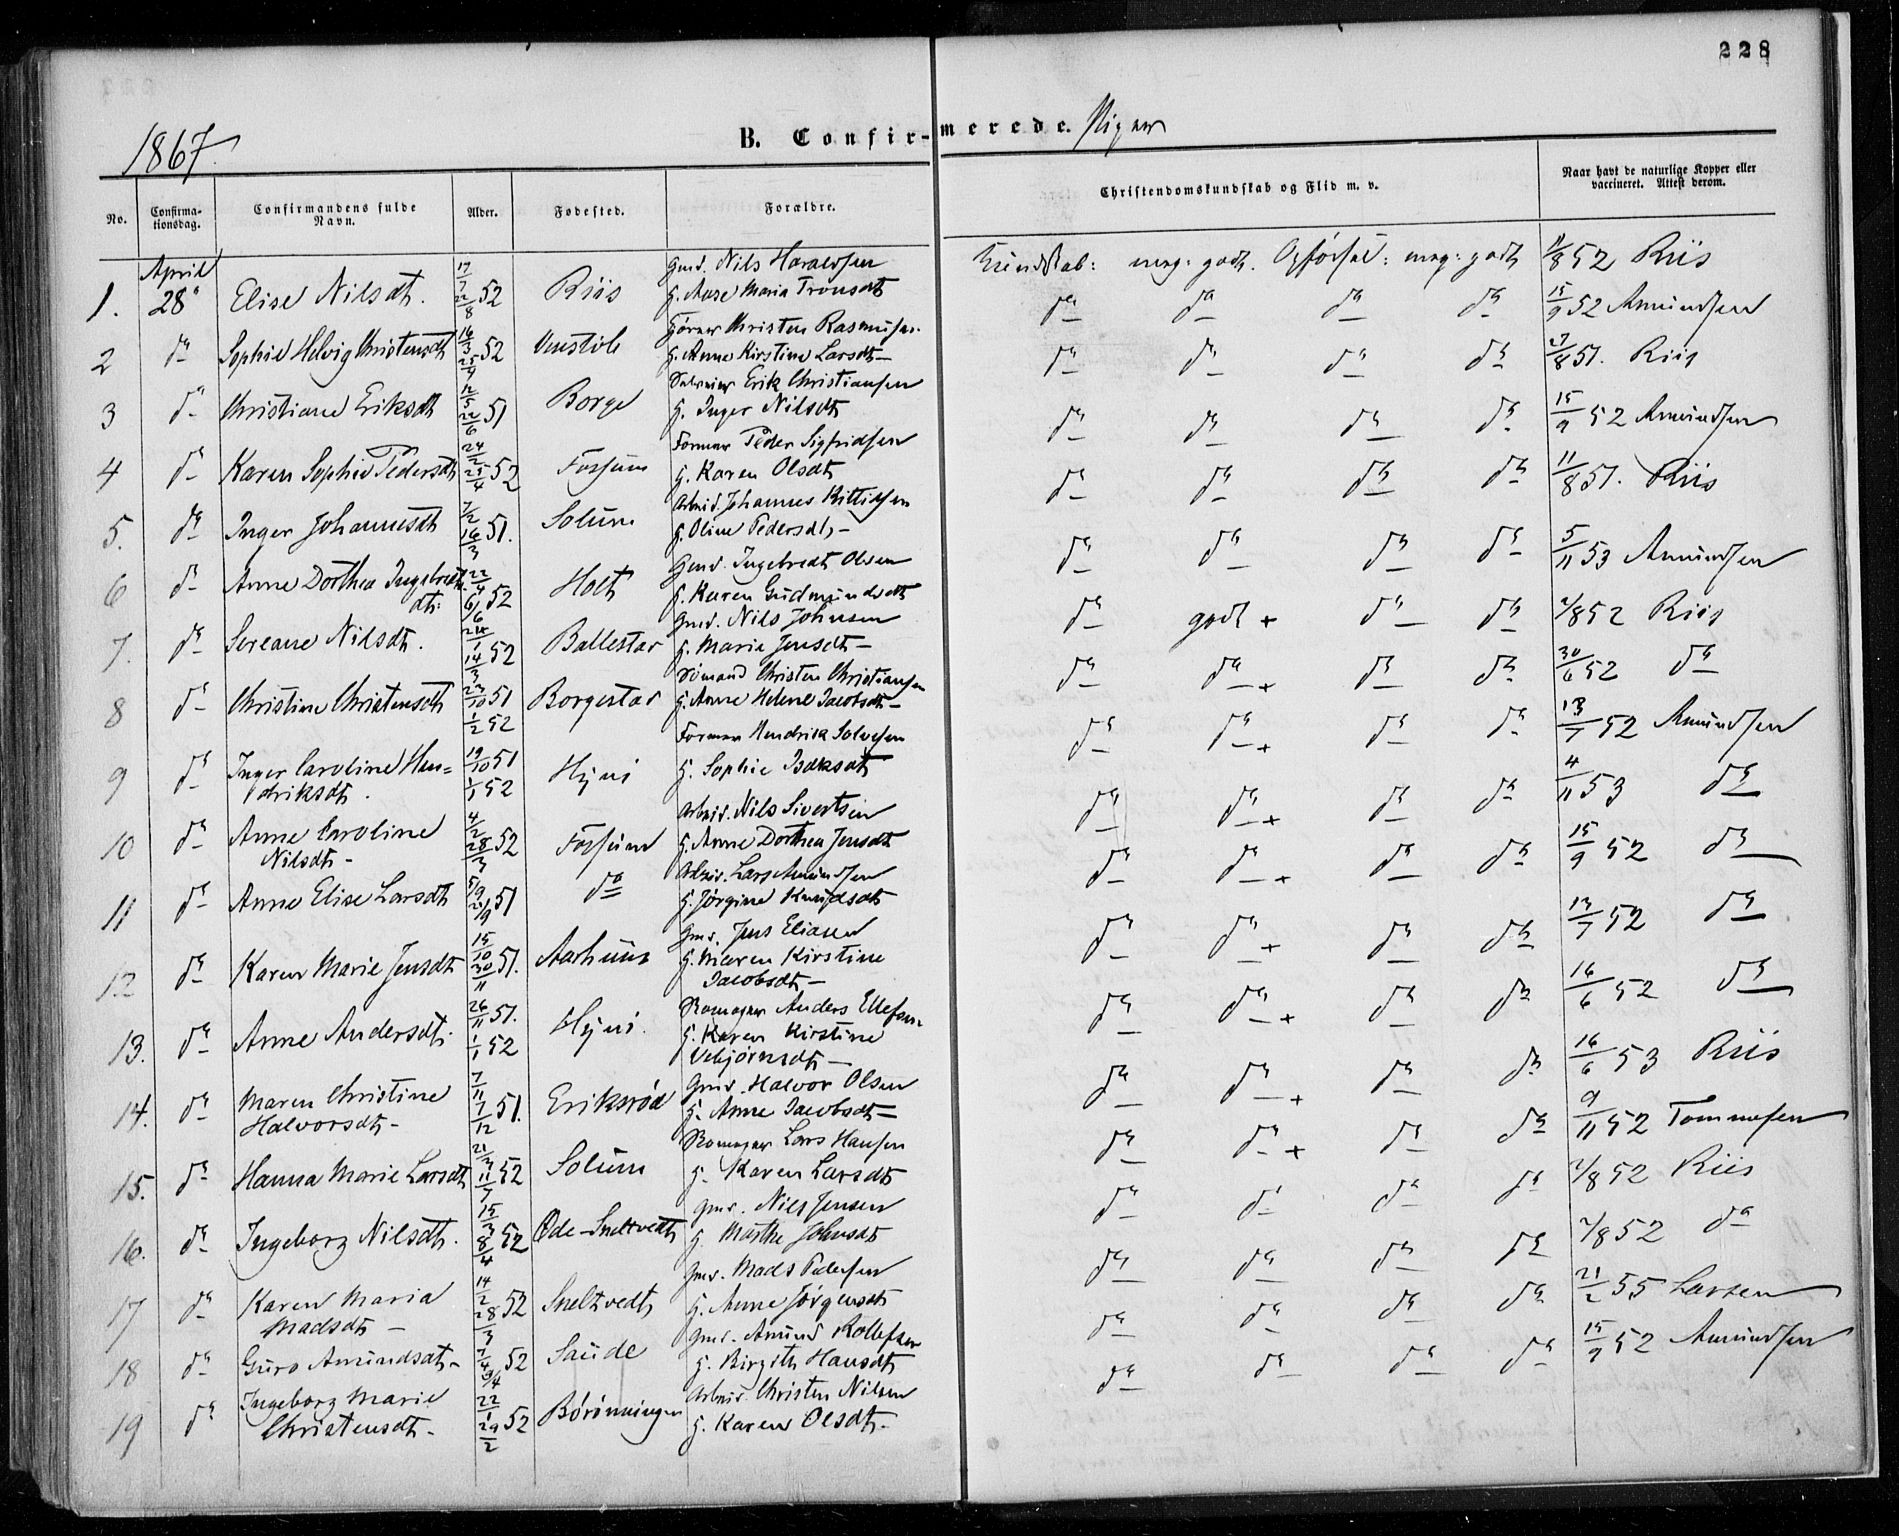 228
1867.
B. Confirmerede. Piger
No. Confirmationsdag. Confirmandens fulde Navn. Alder. Fødested. Forældre. Christendomskundskab og Flid m. v. Naar havt de naturlige Kopper eller vaccineret. Attest derom.
April
1. 28 Elise Nilsdt. 22/8 52 Riis Gmd. Nils Haraldsen
H. Aase Maria Tronsdt Kundskab: meg: godt. Opførsel: meg: godt 11/8 52 Riis
2 do Sophie Helvig Christensdt 16/3 25/4 52 Venstøb Christen Rasmusen
H. Anne Kirstine Larsdt do do do do 15/9 52 Amundsen
3 do Christiane Eriksdt 12/5 22/6 51 Borge Erik Christiansen
H. Inger Nilsdt do do do do 27/8 51. Riis
4 do Karen Sophie Pedersdt 24/2 25/4 52 Fossum Former Peder Sigfridsen
H. Karen Olsdt do do do do 15/9 52 Amundsen
5. do Inger Johannesdt 7/2 16/3 51. Solum Arbeid. Johannes Kittilsen
H. Oline Pedersdt do do do do 11/8 51. Riis
6 do Anne Dorthea Ingebretsdt: 22/4 6/6 52 Holt Gmd. Ingebredt Olsen
H. Karen Gudmundsdt do do do do 5/11 53 Amundsen
7. do Sereane Nilsdt. 24/1 14/3 52 Ballestad Gmd. Nils Johnsen
H. Maria Jensdt do godt + do do 2/8 52 Riis
8 do Christine Christensdt 23/10 51 1/2 52 Borgestad Sømand Christen Christiansen
H. Anne Helene Jacobsdt do do + do do 30/6 52 do
9 do Inger Caroline Hendriksdt. 19/10 51 1/1 52 Hyni Former Hendrik Solvesen
H. Sophie Isaksdt do do + do do 13/7 52 Amundsen
10 do Anne Caroline Nilsdt 4/2 28/3 52 Fossum Arbeid. Nils Sivertsen
H. Anne Dorthea Jensdt do do + do do 4/11 53 do
11 do Anne Elise Larsdt 5/9 21/9 51 do Arbeid. Lars Amundsen
H. Jørgine Knudsdt do do + do do 15/9 52 do
12 do Karen Marie Jensdt 15/10 30/11 51. Aarhuus Gmd. Jens Eliasen
H. Maren Kirstine
Jacobsdt do do + do do 13/7 52 do
13. do Anne Andersdt. 26/11 51. 1/1 52 Hyni. Anders Ellefsen
H. Karen Kirstine
Vebjørnsdt do do + do do 16/6 52 do
14. do Maren Christine Halvorsdt 7/11 7/12 51. Eriksrød Gmd. Halvor Olsen
H. Anne Jacobsdt do do + do do 16/6 53 Riis
15. do Hanna Marie Larsdt 11/7 52 Solum Lars Hansen
H. Karen Larsdt do do + do do 9/11 52 Tommesen
16. do Ingeborg Nilsdt. 15/3 8/4 52 Øde-Sneltvedt Gmd. Nils Jensen
H. Marthe Johnsdt do do do do 2/8 52 Riis
17 do Karen Maria Madsdt 14/2 28/3 52 Sneltvedt Gmd. Mads Pedersen
H. Anne Jørgensdt do do do do 2/8 52 do
18 do Guro Amundsdt 52 Saude Gmd. Amund Rollefsen
H. Birgith Hansdt do do do do 21/2 55 Larsen
19 do Ingeborg Marie Christensdt 22/1 29/2 52 Børønningen Arbeid. Christen Nilsen
H. Karen Olsdt. do do do do 15/9 52 Amundsen